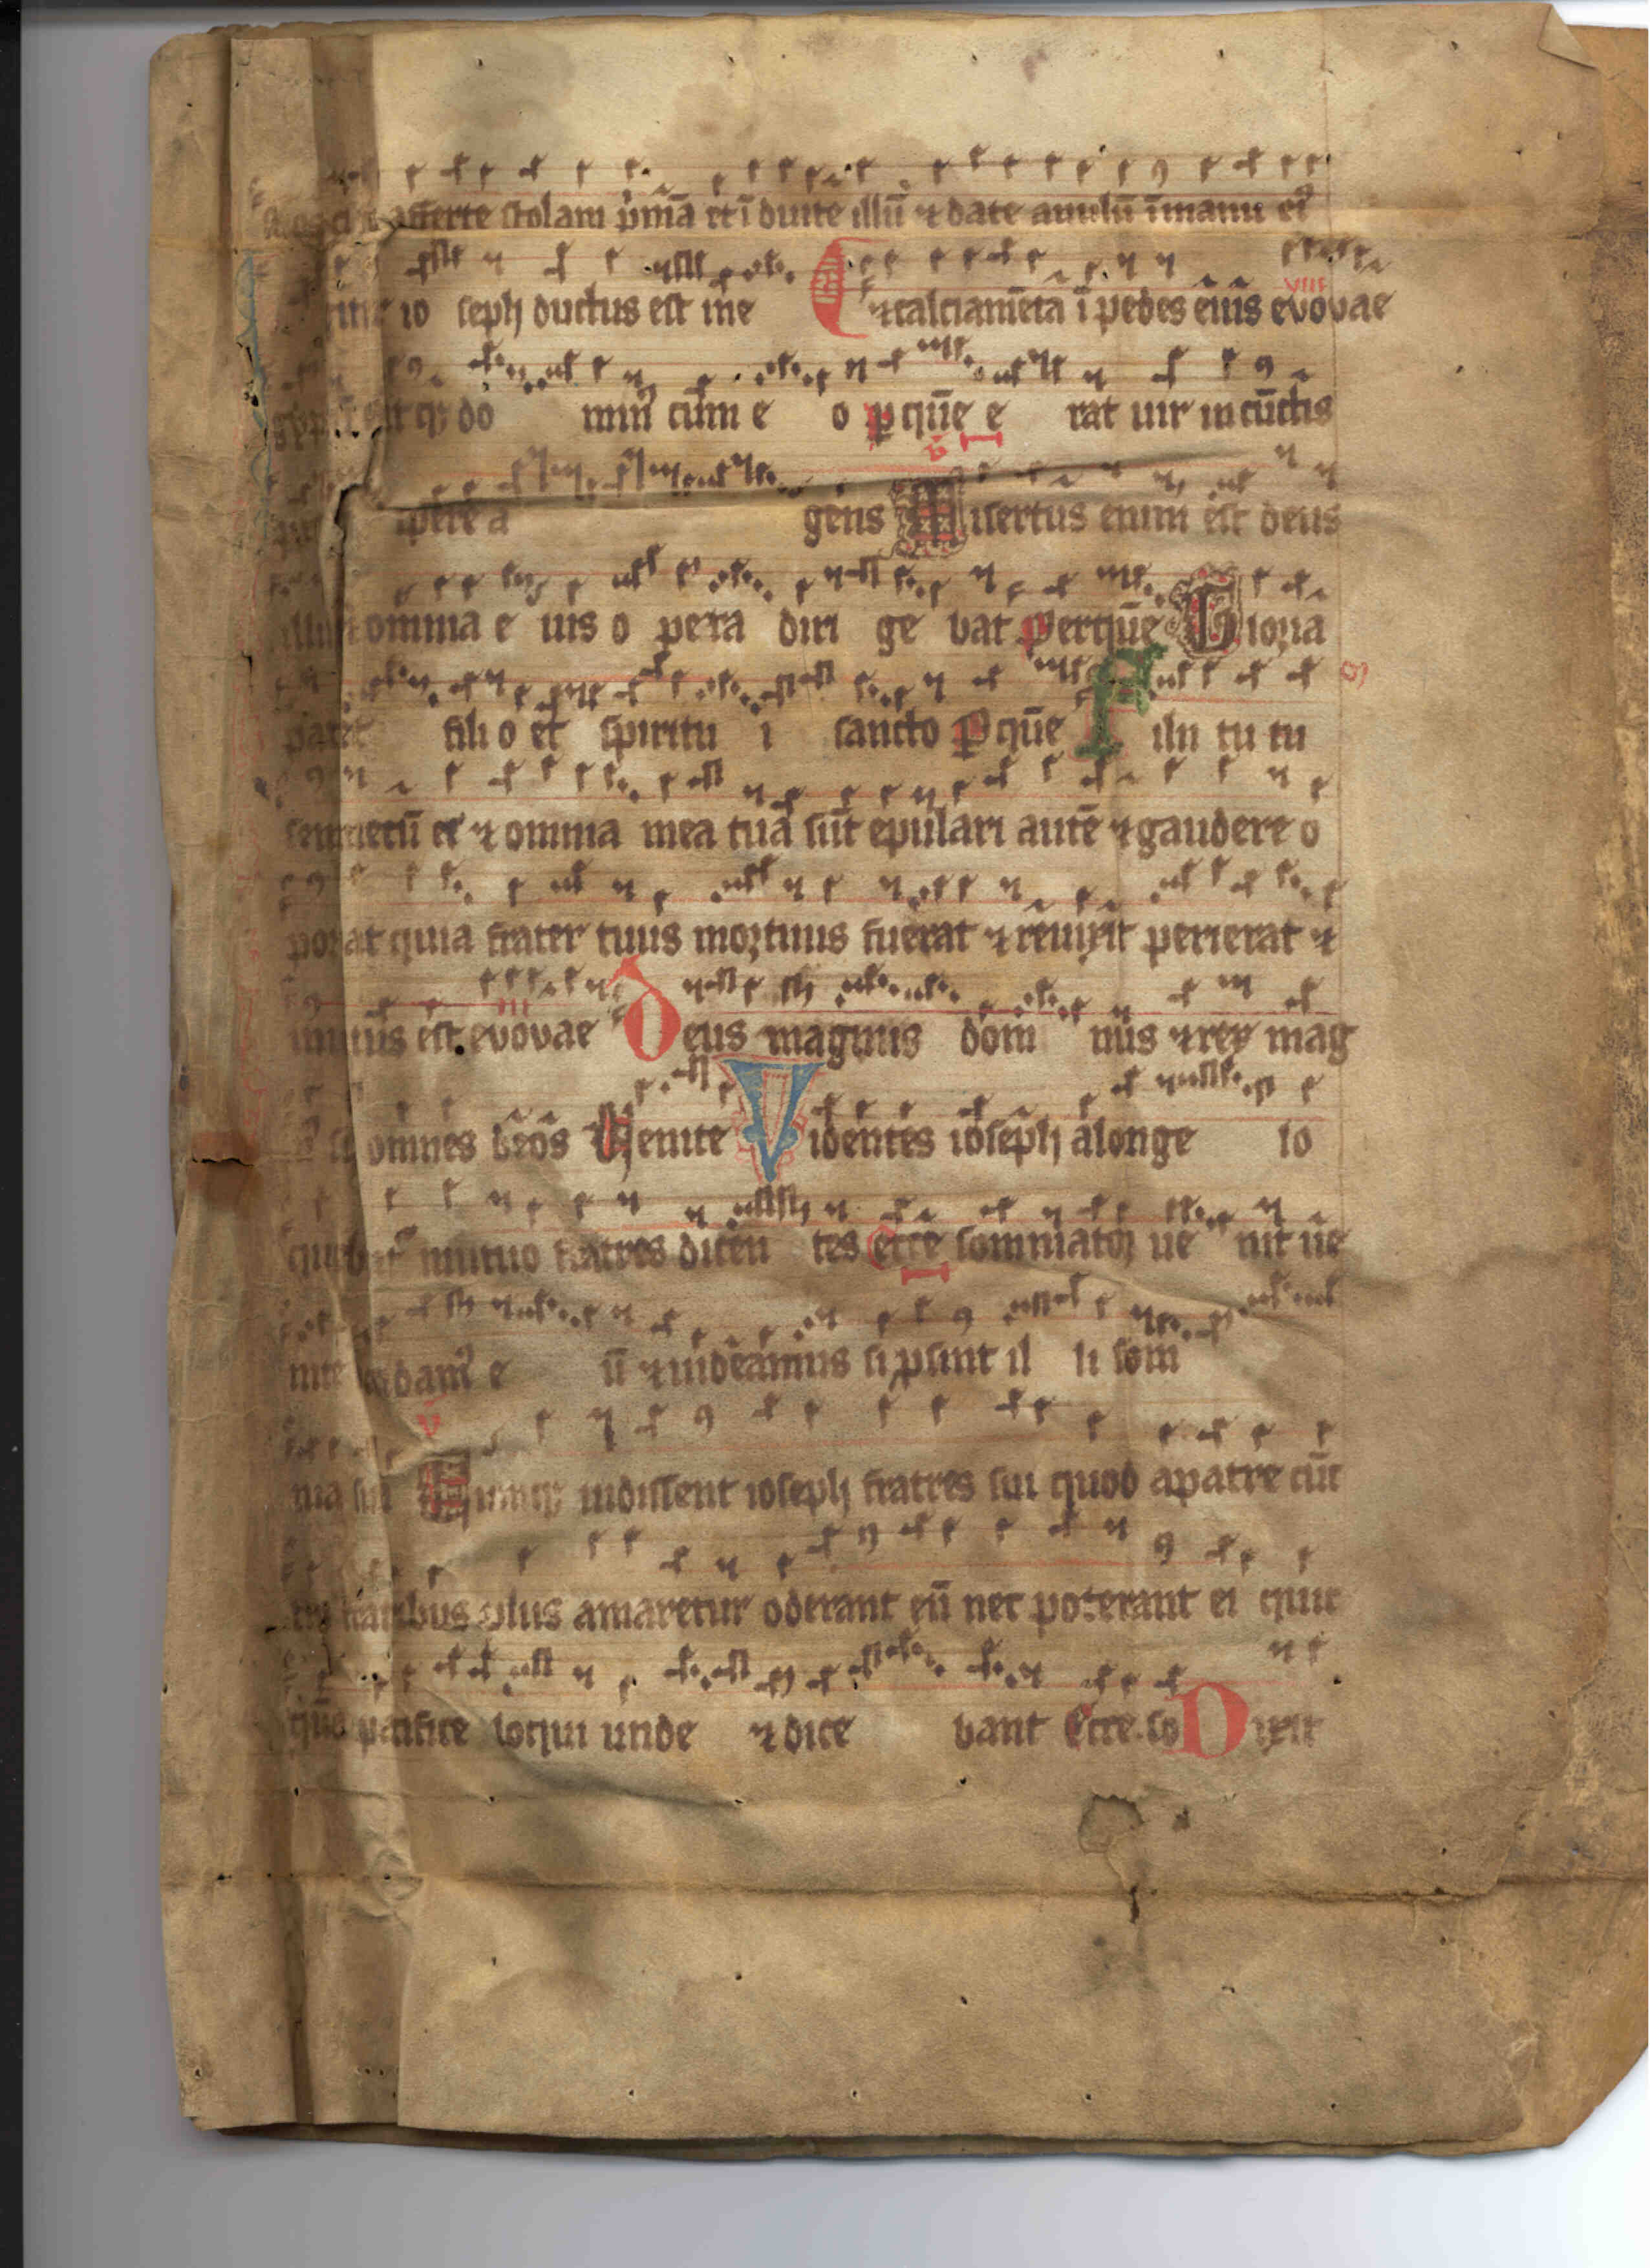 afferte stolam pͥmā et ī duite illū ⁊ date anulū ī manu eiꝰ
io seph ductus est in e ⁊ calciam̄eta ī pedes eius evovae VIII
do minꝰ cum e o p quē e rat uir in cūctis
spere a gens Misertus enim est deus
illius omnia e ius o pera diri ge bat Perquē Gloria
patri filio et spiritu i sancto P quē Filii tu tu
semꝑ mecū es ⁊ omnia mea tua sūt epulari autē ⁊ gaudere o
portat quia frater tuus mortuus fuerat ⁊ reuixit perierat ⁊
inuētus est. evovae III Deus magnus dom nus ⁊ rex mag
omnes deos Venite Videntes ioseph a longe lo
mutuo fratres dicen tes Ecce somniator ue nit ue
nite e ū ⁊ uideamus si ꝓsint il li som
nia sua Cumqꝫ uidissent ioseph fratres sui quod a patre cūc
tis fratribus plus amaretur oderant eū nec poterant ei quic
pacifice loqui unde ⁊ dice bant Ecce. so Dixit